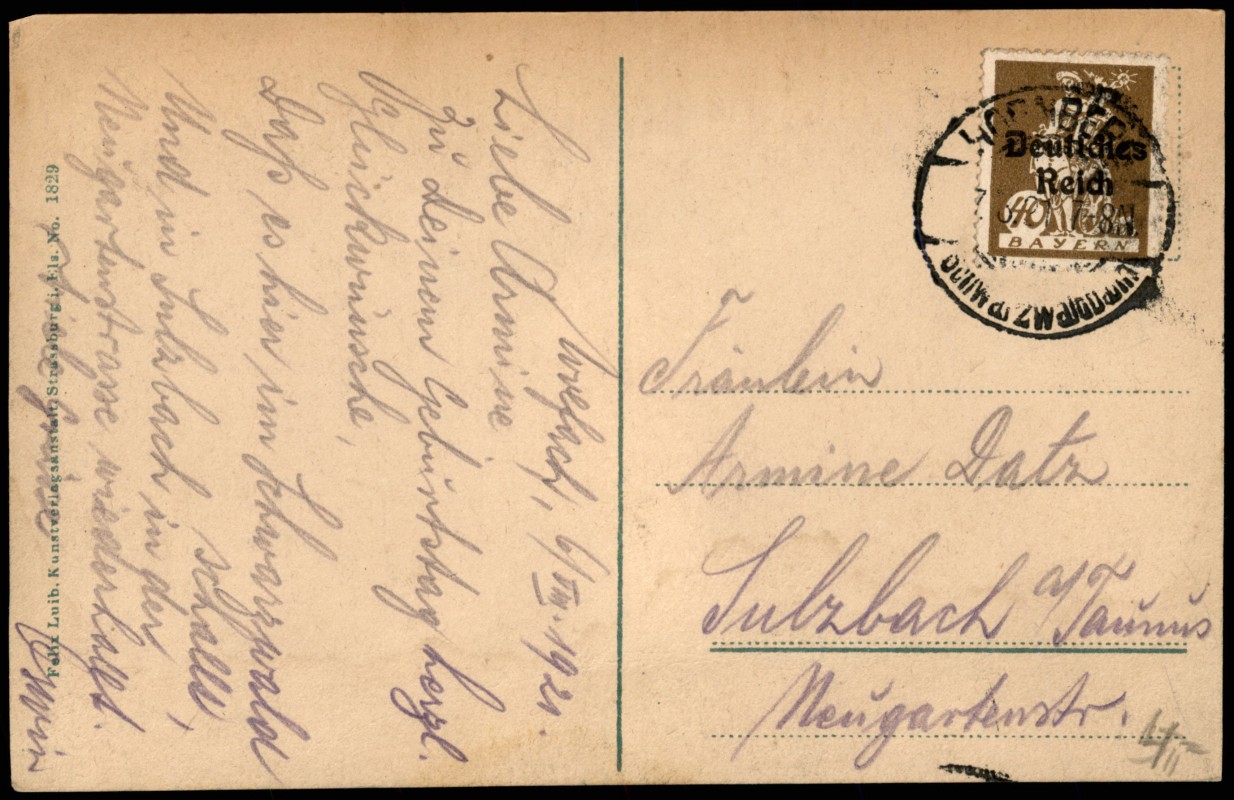 Wolfach, 6/VII. 1921.
Liebe Armine
Zu deinem Geburtstag herzl.
Glückwünsche,
Dass es hier im Schwarzwald
schallt,
Und in Sulzbach in der
Neugartenstrasse wiederhallt.
Erwin
Felix Luib, Kunstverlagsanstalt, Strassburg i. Els. No. 1829
Deutsches
Reich
40
BAYERN
7-8N.
Fräulein
Armine Datz
Sulzbach a/Taunus
Neugartenstr.